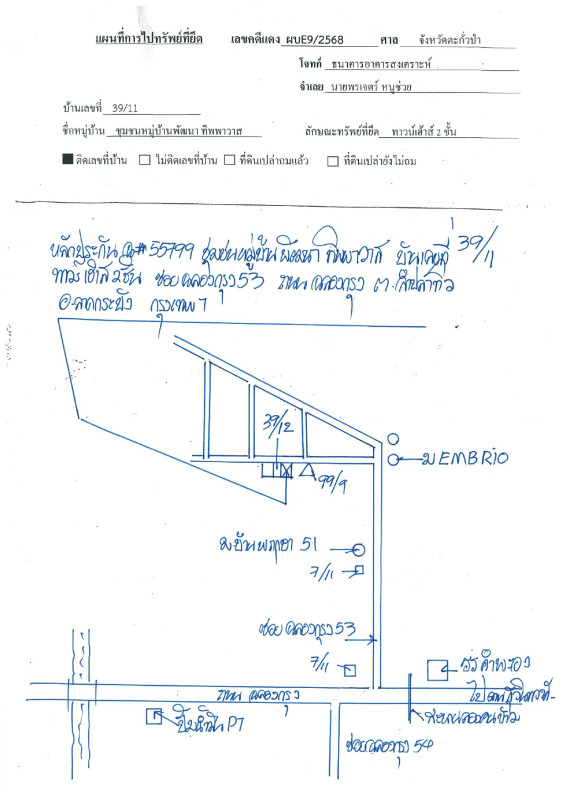 แผนที่การไปทรัพย์ที่ยึด เลขคดีแดง ผบE9/2568 ศาล จังหวัดตะกั่วป่า
โจทก์ ธนาคารอาคารสงเคราะห์
จำเลย นายพรเจตร์ หนูช่วย
บ้านเลขที่ 39/11
ชื่อหมู่บ้าน ชุมชนหมู่บ้านพัฒนา ทิพพาวาส ลักษณะทรัพย์ที่ยึด ทาวน์เฮ้าส์ 2 ชั้น
ติดเลขที่บ้าน ไม่ติดเลขที่บ้าน ที่ดินเปล่าถมแล้ว ที่ดินเปล่ายังไม่ถม
หลักประกัน # 55799 ชุมชนหมู่บ้านพัฒนา ทิพพาวาส บ้านเลขที่ 39/11
ทาวน์เฮ้าส์ 2 ชั้น ซอย ฉลองกรุง 53 ถนน ฉลองกรุง ต.
อ.ลาดกระบัง กรุงเทพฯ
39/12
ม EMBRIO
99/9
ม.บ้านพฤกษา 51
7/11
ซอย ฉลองกรุง 53
7/11
รร
ถนน ฉลองกรุง
ปั๊มน้ำมัน PT
ซอยฉลองกรุง 54